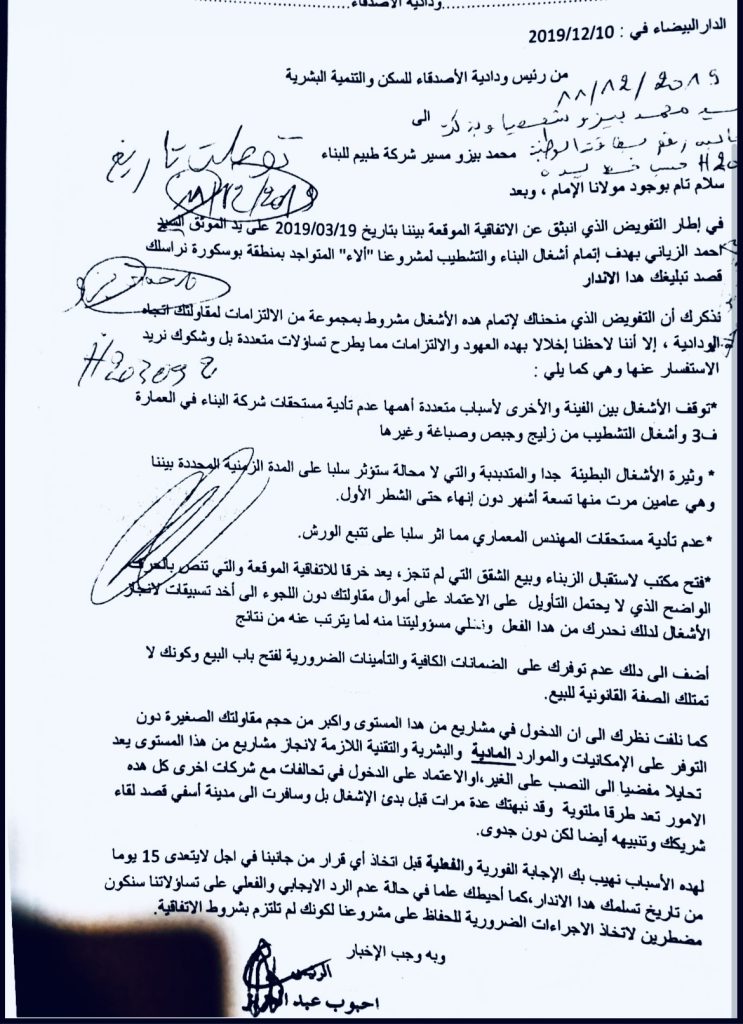 ودادية الأصدقاء
الدار البيضاء في : 2019/12/10
من رئيس ودادية الأصدقاء للسكن والتنمية البشرية
11/12/2019
الى
توصلت بتاريخ
محمد بيزو مسير شركة طبيم للبناء
11/12/2019
سلام تام بوجود مولانا الإمام ، وبعد
في إطار التفويض الذي انبثق عن الاتفاقية الموقعة بيننا بتاريخ 2019/03/19 على يد الموثق السيد
احمد الزياني بهدف إتمام أشغال البناء والتشطيب لمشروعنا "ألاء" المتواجد بمنطقة بوسكورة نراسلك
قصد تبليغك هدا الاندار
نذكرك أن التفويض الذي منحناك لإتمام هده الأشغال مشروط بمجموعة من الالتزامات لمقاولتك اتجاه
الودادية ، إلا أننا لاحظنا إخلالا بهده العهود والالتزامات مما يطرح تساؤلات متعددة بل وشكوك نريد
الاستفسار عنها وهي كما يلي :
*توقف الأشغال بين الفينة والأخرى لأسباب متعددة أهمها عدم تأدية مستحقات شركة البناء في العمارة
ف3 وأشغال التشطيب من زليج وجبص وصباغة وغيرها
* وثيرة الأشغال البطيئة جدا والمتدبدبة والتي لا محالة ستؤثر سلبا على المدة الزمنية المحددة بيننا
وهي عامين مرت منها تسعة أشهر دون إنهاء حتى الشطر الأول.
*عدم تأدية مستحقات المهندس المعماري مما اثر سلبا على تتبع الورش.
*فتح مكتب لاستقبال الزبناء وبيع الشقق التي لم تنجز، يعد خرقا للاتفاقية الموقعة والتي تنص بالحرف
الواضح الذي لا يحتمل التأويل على الاعتماد على أموال مقاولتك دون اللجوء الى أخد تسبيقات لانجاز
الأشغال لدلك نحدرك من هدا الفعل ونخلي مسؤوليتنا منه لما يترتب عنه من نتائج
أضف الى دلك عدم توفرك على الضمانات الكافية والتأمينات الضرورية لفتح باب البيع وكونك لا
تمتلك الصفة القانونية للبيع.
كما نلفت نظرك الى ان الدخول في مشاريع من هدا المستوى واكبر من حجم مقاولتك الصغيرة دون
التوفر على الإمكانيات والموارد المادية والبشرية والتقنية اللازمة لانجاز مشاريع من هذا المستوى يعد
تحايلا مفضيا الى النصب على الغير،اوالاعتماد على الدخول في تحالفات مع شركات اخرى كل هده
الامور تعد طرقا ملتوية وقد نبهتك عدة مرات قبل بدئ الإشغال بل وسافرت الى مدينة أسفي قصد لقاء
شريكك وتنبيهه أيضا لكن دون جدوى.
لهده الأسباب نهيب بك الإجابة الفورية والفعلية قبل اتخاذ أي قرار من جانبنا في اجل لايتعدى 15 يوما
من تاريخ تسلمك هدا الاندار،كما أحيطك علما في حالة عدم الرد الايجابي والفعلي على تساؤلاتنا سنكون
مضطرين لاتخاذ الاجراءات الضرورية للحفاظ على مشروعنا لكونك لم تلتزم بشروط الاتفاقية.
وبه وجب الإخبار
الرئيس
احبوب عبد